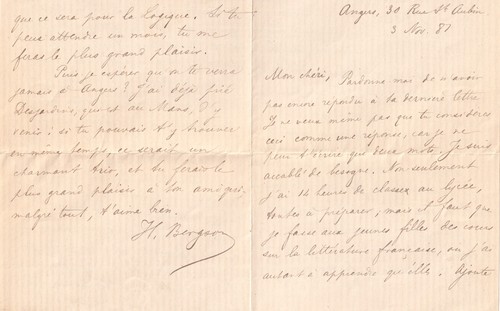 Angers, 30 Rue St Aubin
3 Nov. 81
Mon chéri,
Pardonne moi de n'avoir
pas encore répondu à ta dernière lettre
Je ne veux même pas que tu considères
ceci comme une réponse, car je ne
peux t'écrire que deux mots. Je suis
accablé de besogne. Non seulement
j'ai 14 heures de classes au lycée,
toutes à préparer, mais il faut que
je fasse aux jeunes filles des cours
sur la littérature française, où j'ai
autant à apprendre qu'elles. Ajoute
que ce sera pour la Logique. Si tu
peux attendre un mois, tu me
feras le plus grand plaisir.
Puis-je espérer qu'on te verra
jamais à Angers? J'ai déjà prié
Desjardins, qui est au Mans, d'y
venir: si tu pouvais t'y trouver
en même temps, ce serait un
charmant trio, et tu ferais le
plus grand plaisir à ton ami qui,
malgré tout, t'aime bien.
H. Bergson